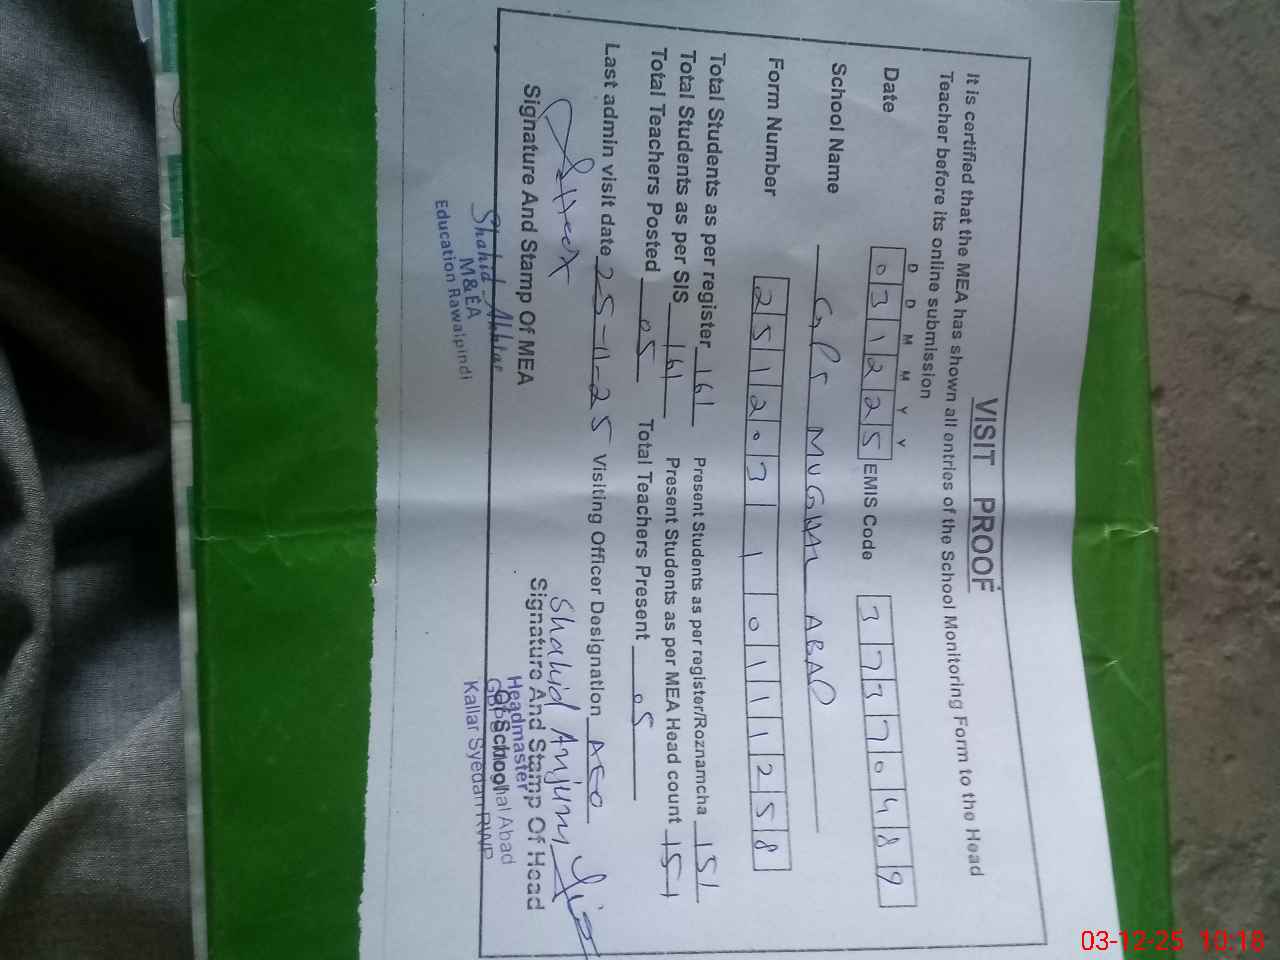 VISIT PROOF
It is certified that the MEA has shown all entries of the School Monitoring Form to the Head
Teacher before its online submission
D D M M Y Y
Date 031225 EMIS Code 37370489
School Name GPS MUGHAL ABAD
Form Number 2512031011258
Total Students as per register 161 Present Students as per register/Roznamcha 151
Total Students as per SIS 161 Present Students as per MEA Head count 151
Total Teachers Posted 05 Total Teachers Present 05
Last admin visit date 25-11-25 Visiting Officer Designation AEO
Shahid Anjum
Signature And Stamp Of MEA Signature And Stamp Of Head
Of School
Shahid Akhtar
M&EA
Education Rawalpindi
Headmaster
Abad
Kallar Syedan RWP
03-12-25 10:18